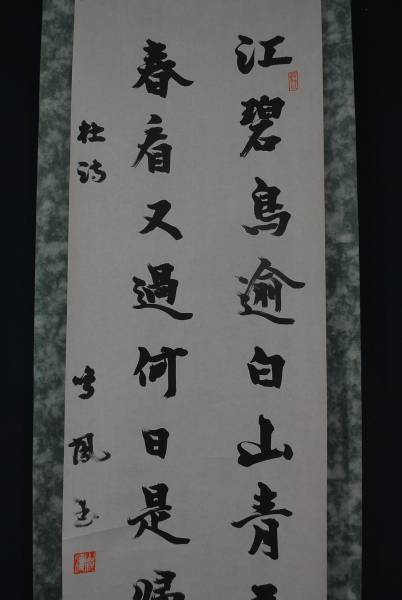 江碧鳥逾白山青
春看又過何日是歸
杜詩
鳴鳳書